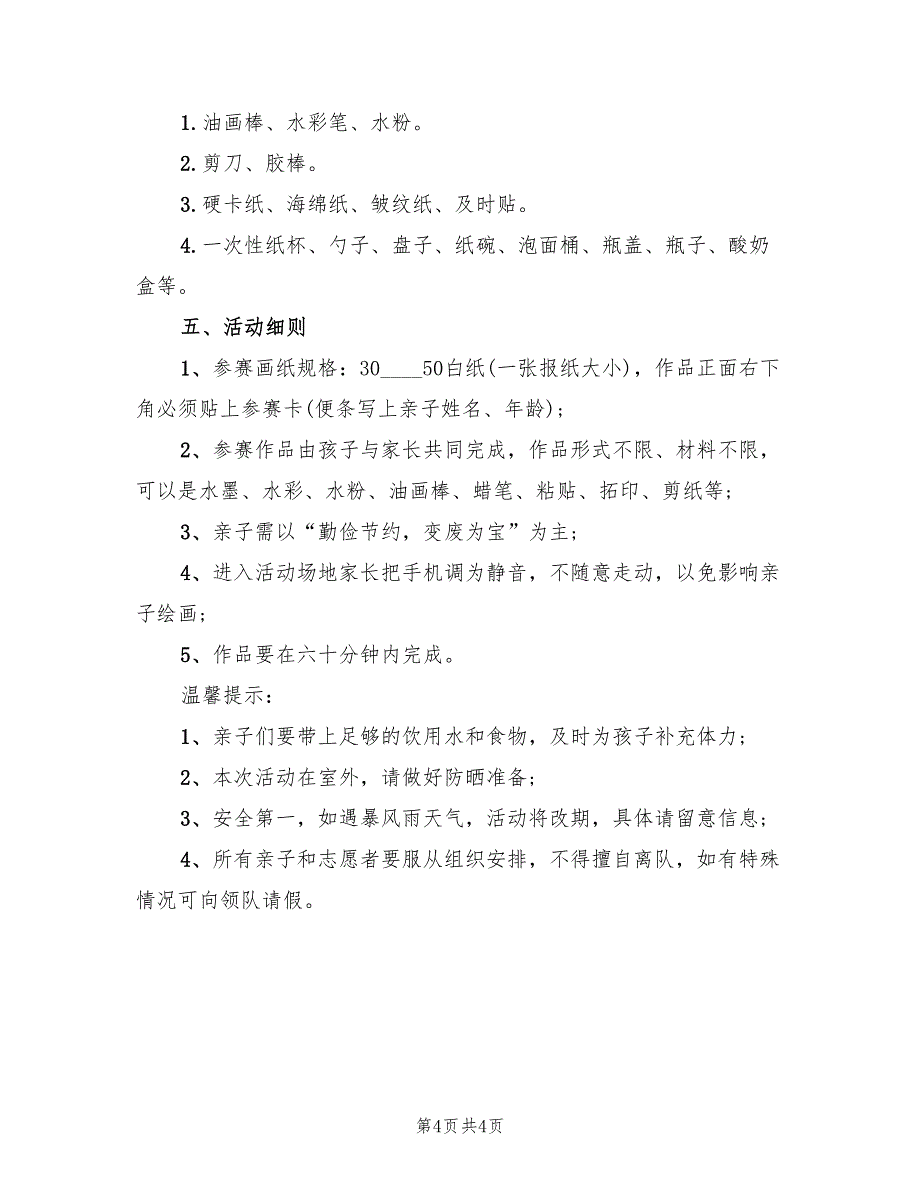 1. 油画棒、水彩笔、水粉。
2. 剪刀、胶棒。
3. 硬卡纸、海绵纸、皱纹纸、及时贴。
4. 一次性纸杯、勺子、盘子、纸碗、泡面桶、瓶盖、瓶子、酸奶
盒等。
五、活动细则
1、参赛画纸规格：30____50白纸(一张报纸大小)，作品正面右下
角必须贴上参赛卡(便条写上亲子姓名、年龄);
2、参赛作品由孩子与家长共同完成，作品形式不限、材料不限，
可以是水墨、水彩、水粉、油画棒、蜡笔、粘贴、拓印、剪纸等;
3、亲子需以“勤俭节约，变废为宝”为主;
4、进入活动场地家长把手机调为静音，不随意走动，以免影响亲
子绘画;
5、作品要在六十分钟内完成。
温馨提示：
1、亲子们要带上足够的饮用水和食物，及时为孩子补充体力;
2、本次活动在室外，请做好防晒准备;
3、安全第一，如遇暴风雨天气，活动将改期，具体请留意信息;
4、所有亲子和志愿者要服从组织安排，不得擅自离队，如有特殊
情况可向领队请假。
第4页共4页